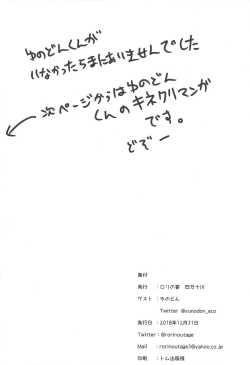 ゆのどんくんが
いなかったらまにあいませんでした
次ページからはゆのどん
くんのキネクリマンガ
です。
どぞー
奥付
発行 :ロリの宴 四万十川
ゲスト :ゆのどん
Twitter @yunodon_eco
発行日 :2018年12月31日
Twitter :@rorinoutage
Mail :rorinoutage3@yahoo.co.jp
印刷 :トム出版様